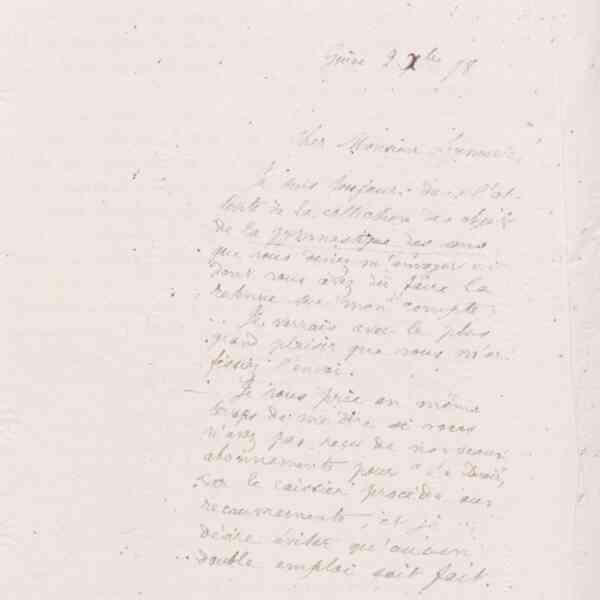 2 Xbre 78
Cher Monsieur
Je suis toujours dans l'at-
tente de la collection des objets
de la gymnastique des sens
que vous deviez m'envoyer
dont vous avez dû faire la
retenue sur mon compte.
Je verrais avec le plus
grand plaisir que vous m'en
fissiez l'envoi.
Je vous prie en même
temps de me dire si vous
n'avez pas reçu de nouveaux
abonnements pour "Le Devoir,
car le caissier procède aux
recouvrements, et je
désire éviter qu'aucun
double emploi soit fait.